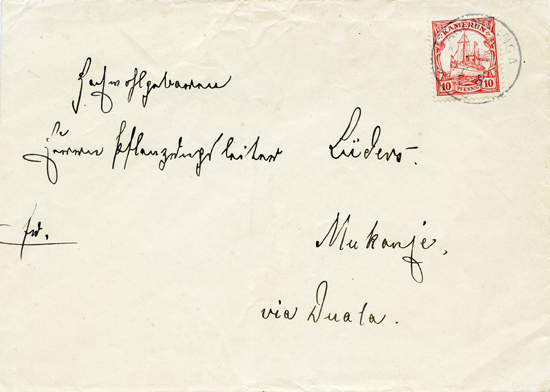 KAMERUN
10 PFENNIG 10
Hochwohlgeboren
Herrn Pflanzungsleiter Lüders.
fr.
Mukonje,
via Duala.